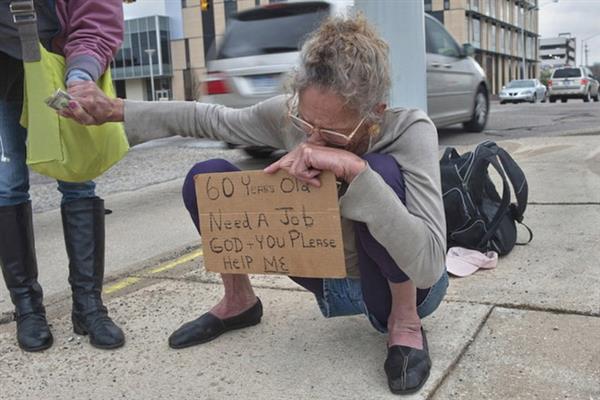 60 Years Old
Need A Job
GOD + YOU PLease
Help Me